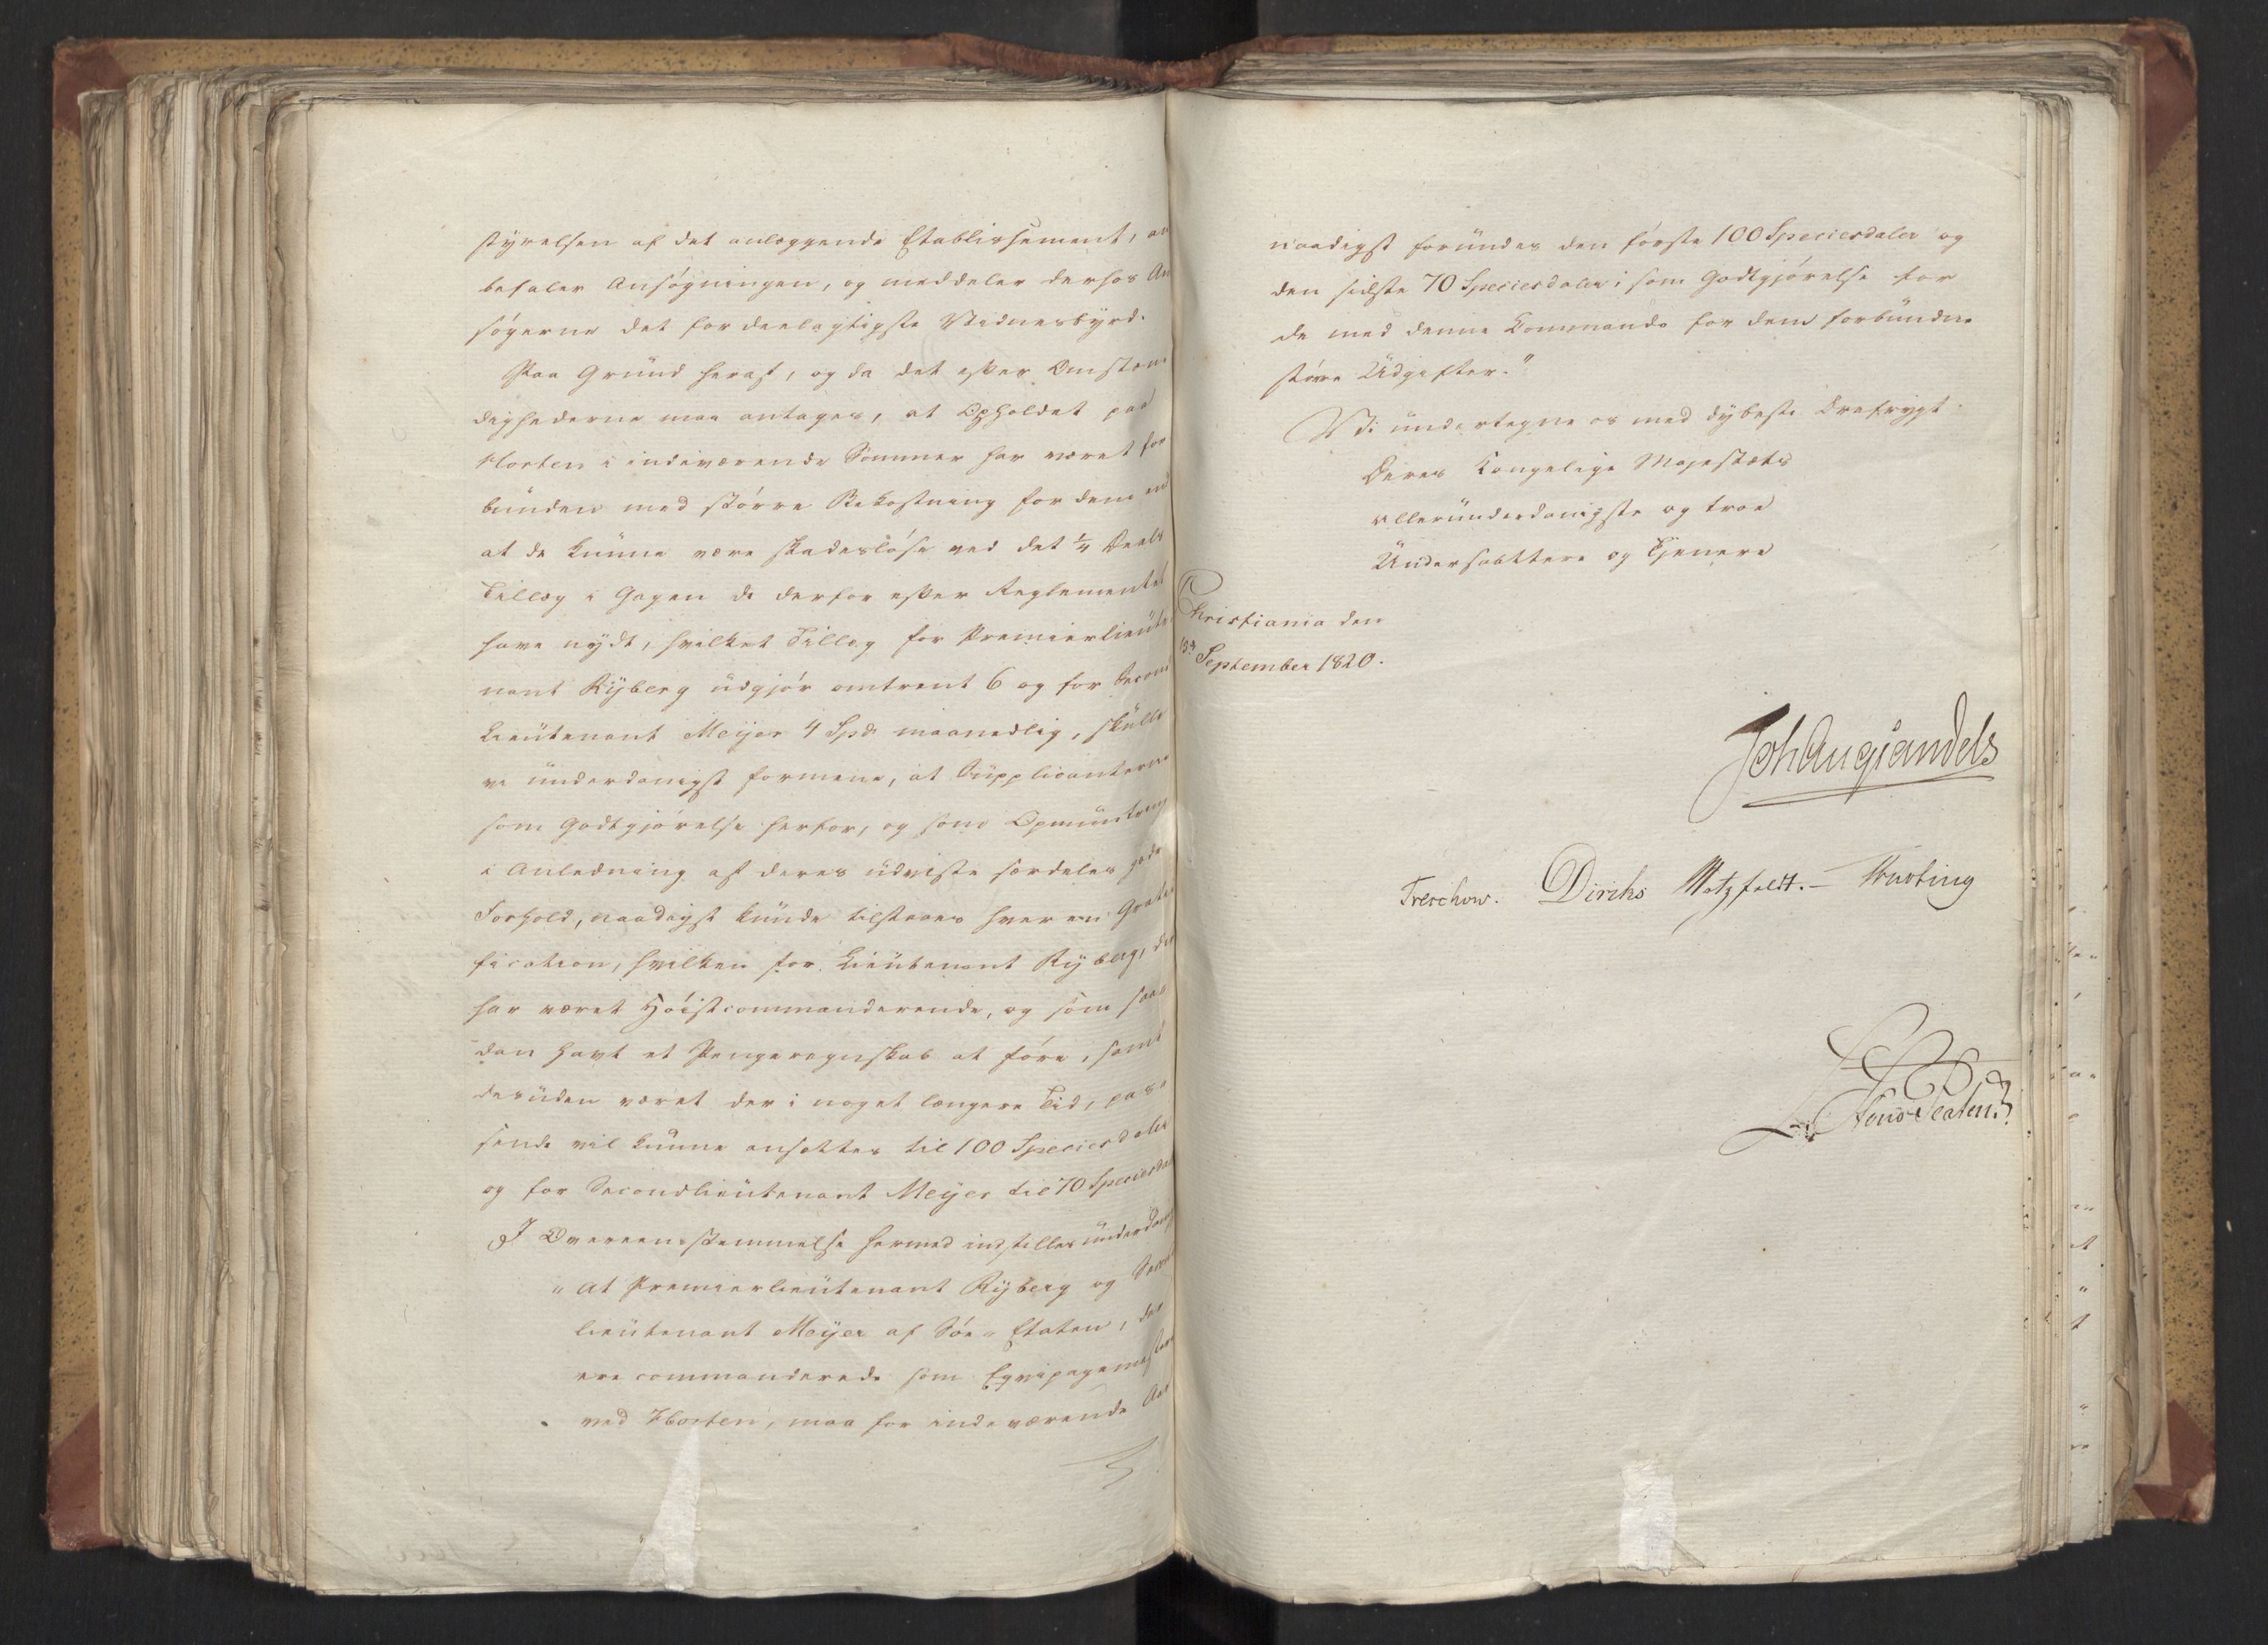 styrelsen af det anlæggende Etablissement, an
befaler Ansøgningen, og meddeler derhos An
søgerne det fordeelagtigste Vidnesbyrd.
Paa Grund heraf, og da det efter Omstæn
dighederne maa antages, at Opholdet paa
Horten i indeværende Sommer har været for
bunden med større Bekostning for dem end
at de kunne være skadesløse ved det ¼ Deels
Tillæg i Gagen de derfor efter Reglementet
have nydt, hvilket Tillæg for Premierlieute
nant Ryberg udgjør omtrent 6 og for Second
Lieutenant Meyer 4 Spd. maanedlig, skulle
vi underdanigst formene, at Supplicanterne
som Godtgjørelse herfor, og som Opmuntring
i Anledning af deres udviste særdeles gode
Forhold, naadigst kunde tilstaaes hver en Grati
fication, hvilken for Lieutenant Ryberg, der
har været Høistcommanderende, og som saa
dan havt et Pengeregnskab at føre, samt
desuden været der i noget længere Tid, pas-
sende vil kunne ansættes til 100 Speciesdaler
og for Secondlieutenant Meyer til 70 Speciesdal
I Overeensstemmelse hermed indstilles underdanigst
"at Premierlieutenant Ryberg og Second
lieutenant Meyer af Søe-Etaten, der
ere commanderede som Eqvipagemestere
ved Horten, maa for indeværende Aar
naadigst forundes den første 100 Speciesdaler og
den sidste 70 Speciesdaler, som Godtgjørelse for
de med denne Commando for dem forbundne
større Udgifter."
Vi undertegne os med dybeste Ærefrygt
Deres Kongelige Majestæts
allerunderdanigste og troe
Undersaattere og Tjenere
Christiania den
13de September 1820.
Joh Aug Sandels
Treschow. Diriks Motzfeldt. Krebting